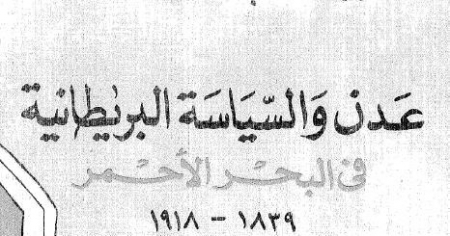 عَدن وَالسّيَاسَة البريطانية
فى البحْر الأحْمر
١٨٣٩ - ١٩١٨